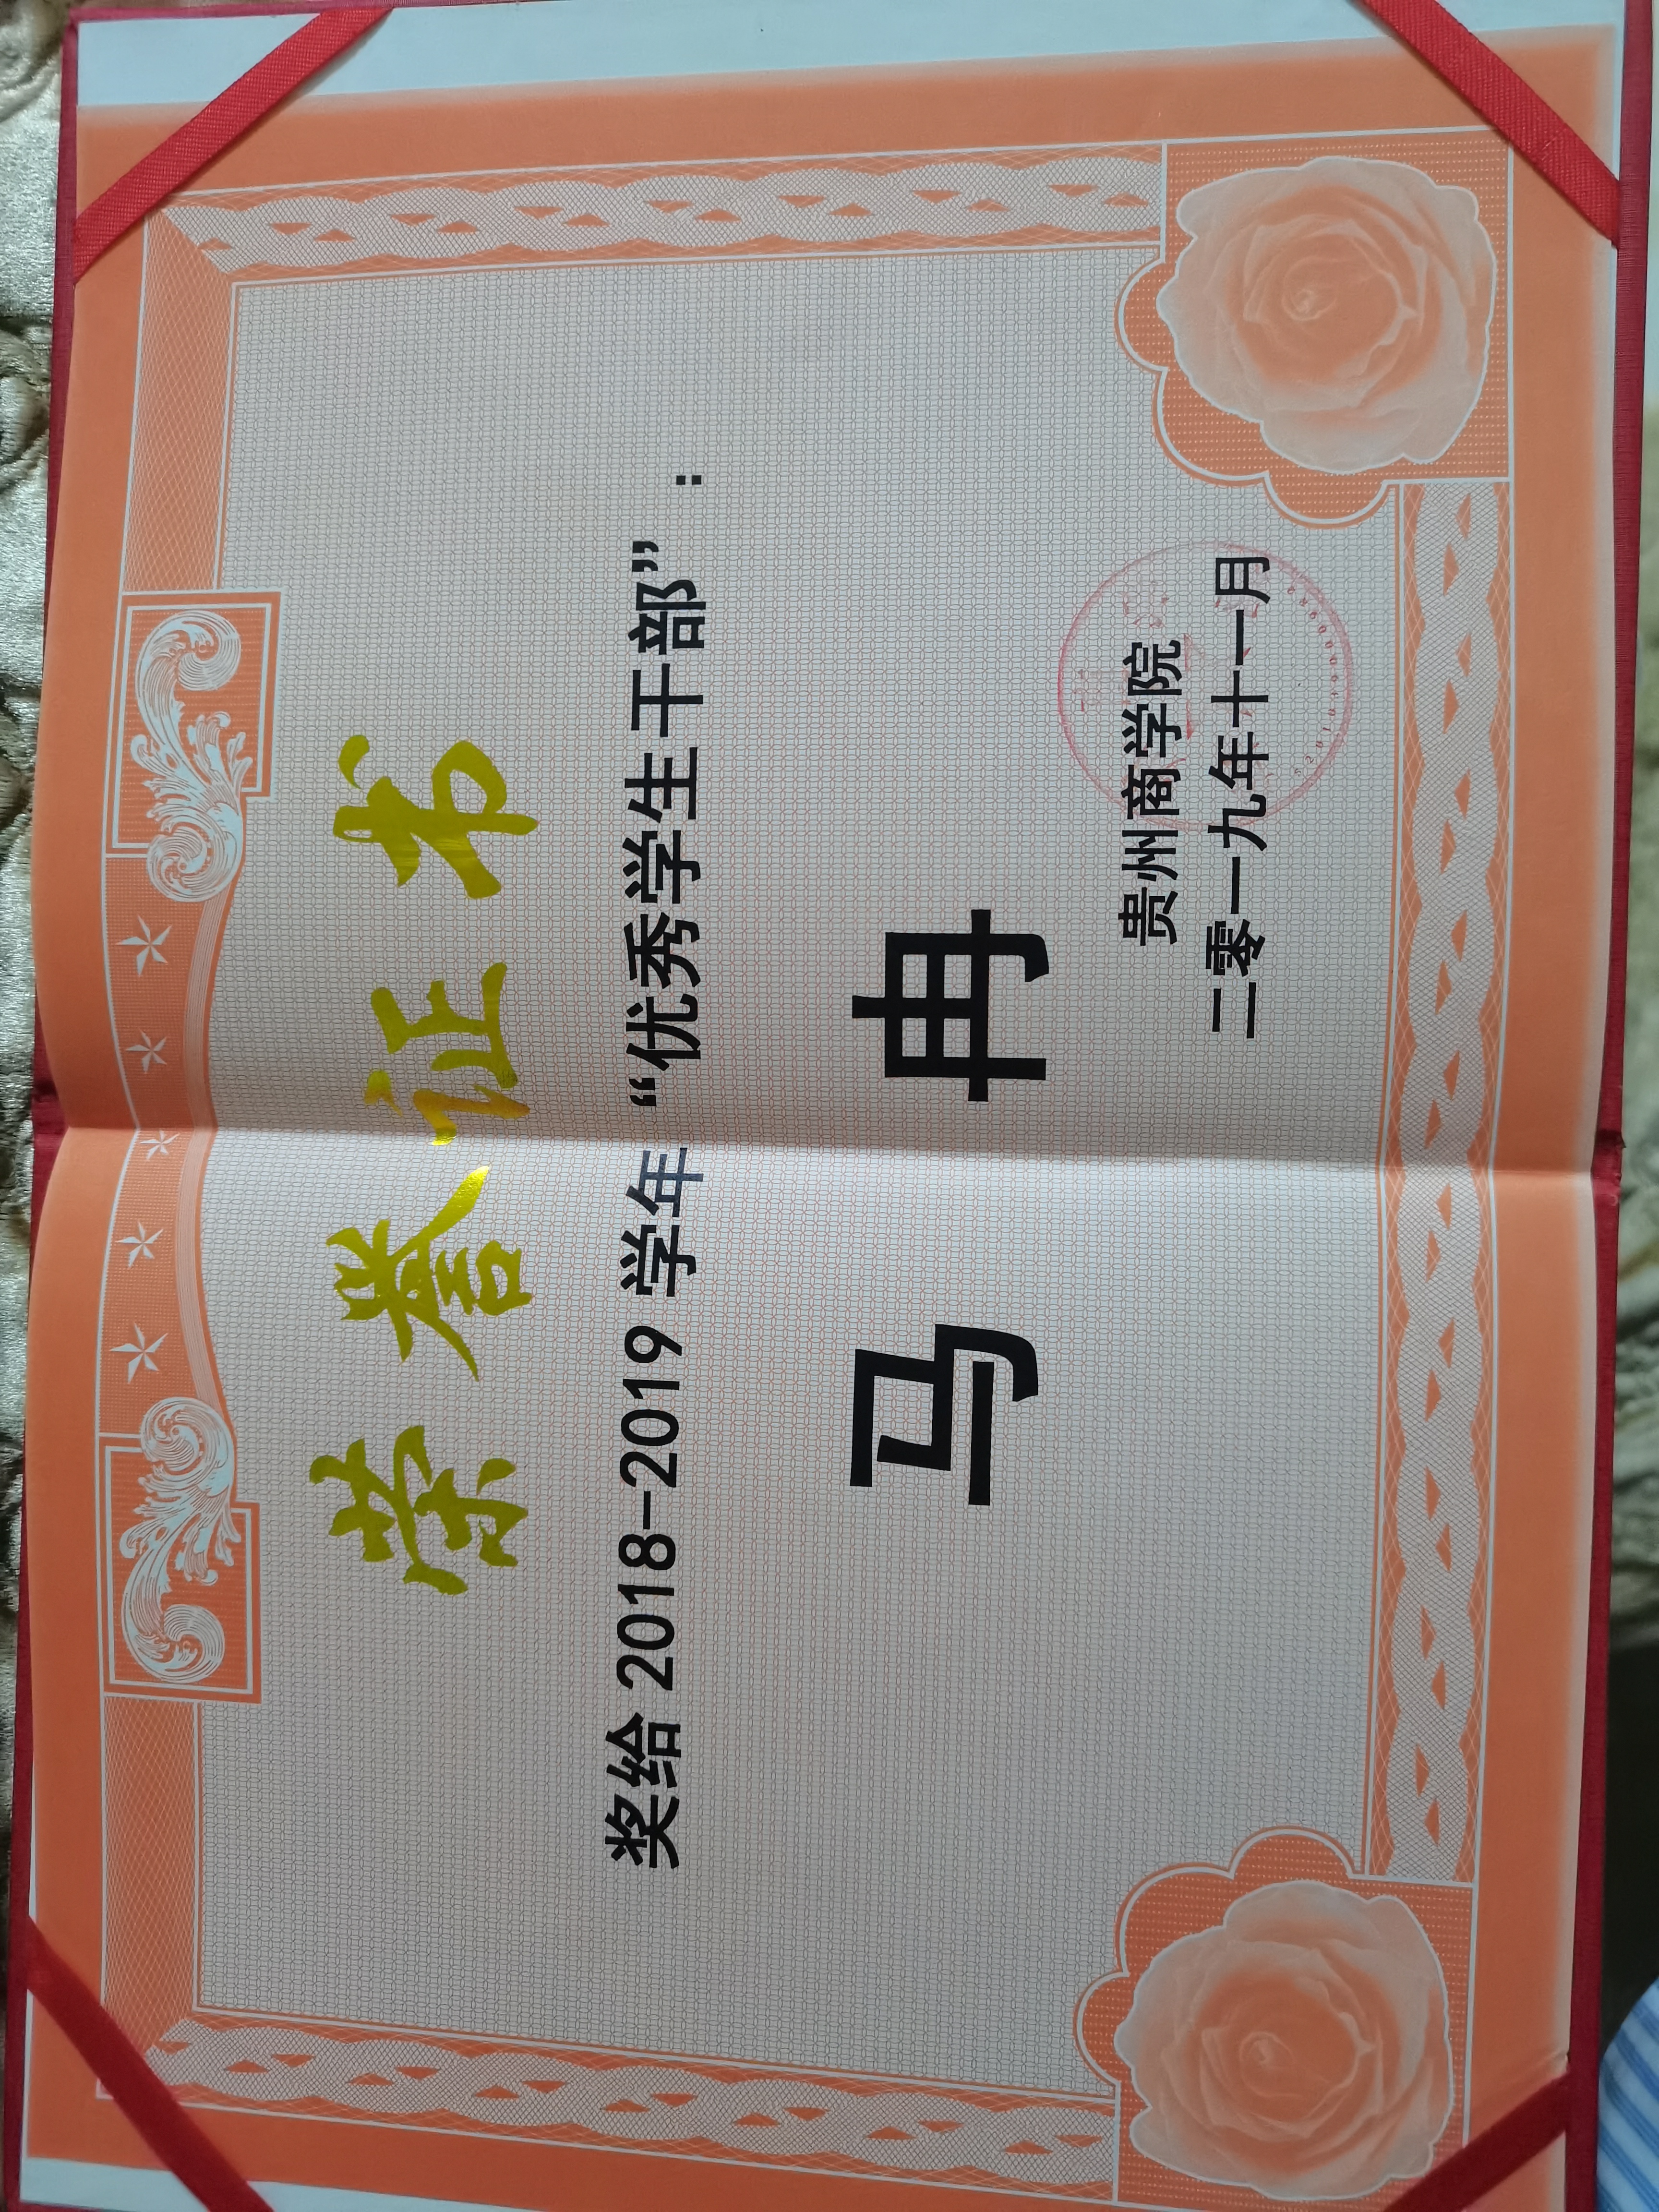 荣誉证书
奖给 2018-2019 学年 “优秀学生干部” ：
马 冉
贵州商学院
二零一九年十一月